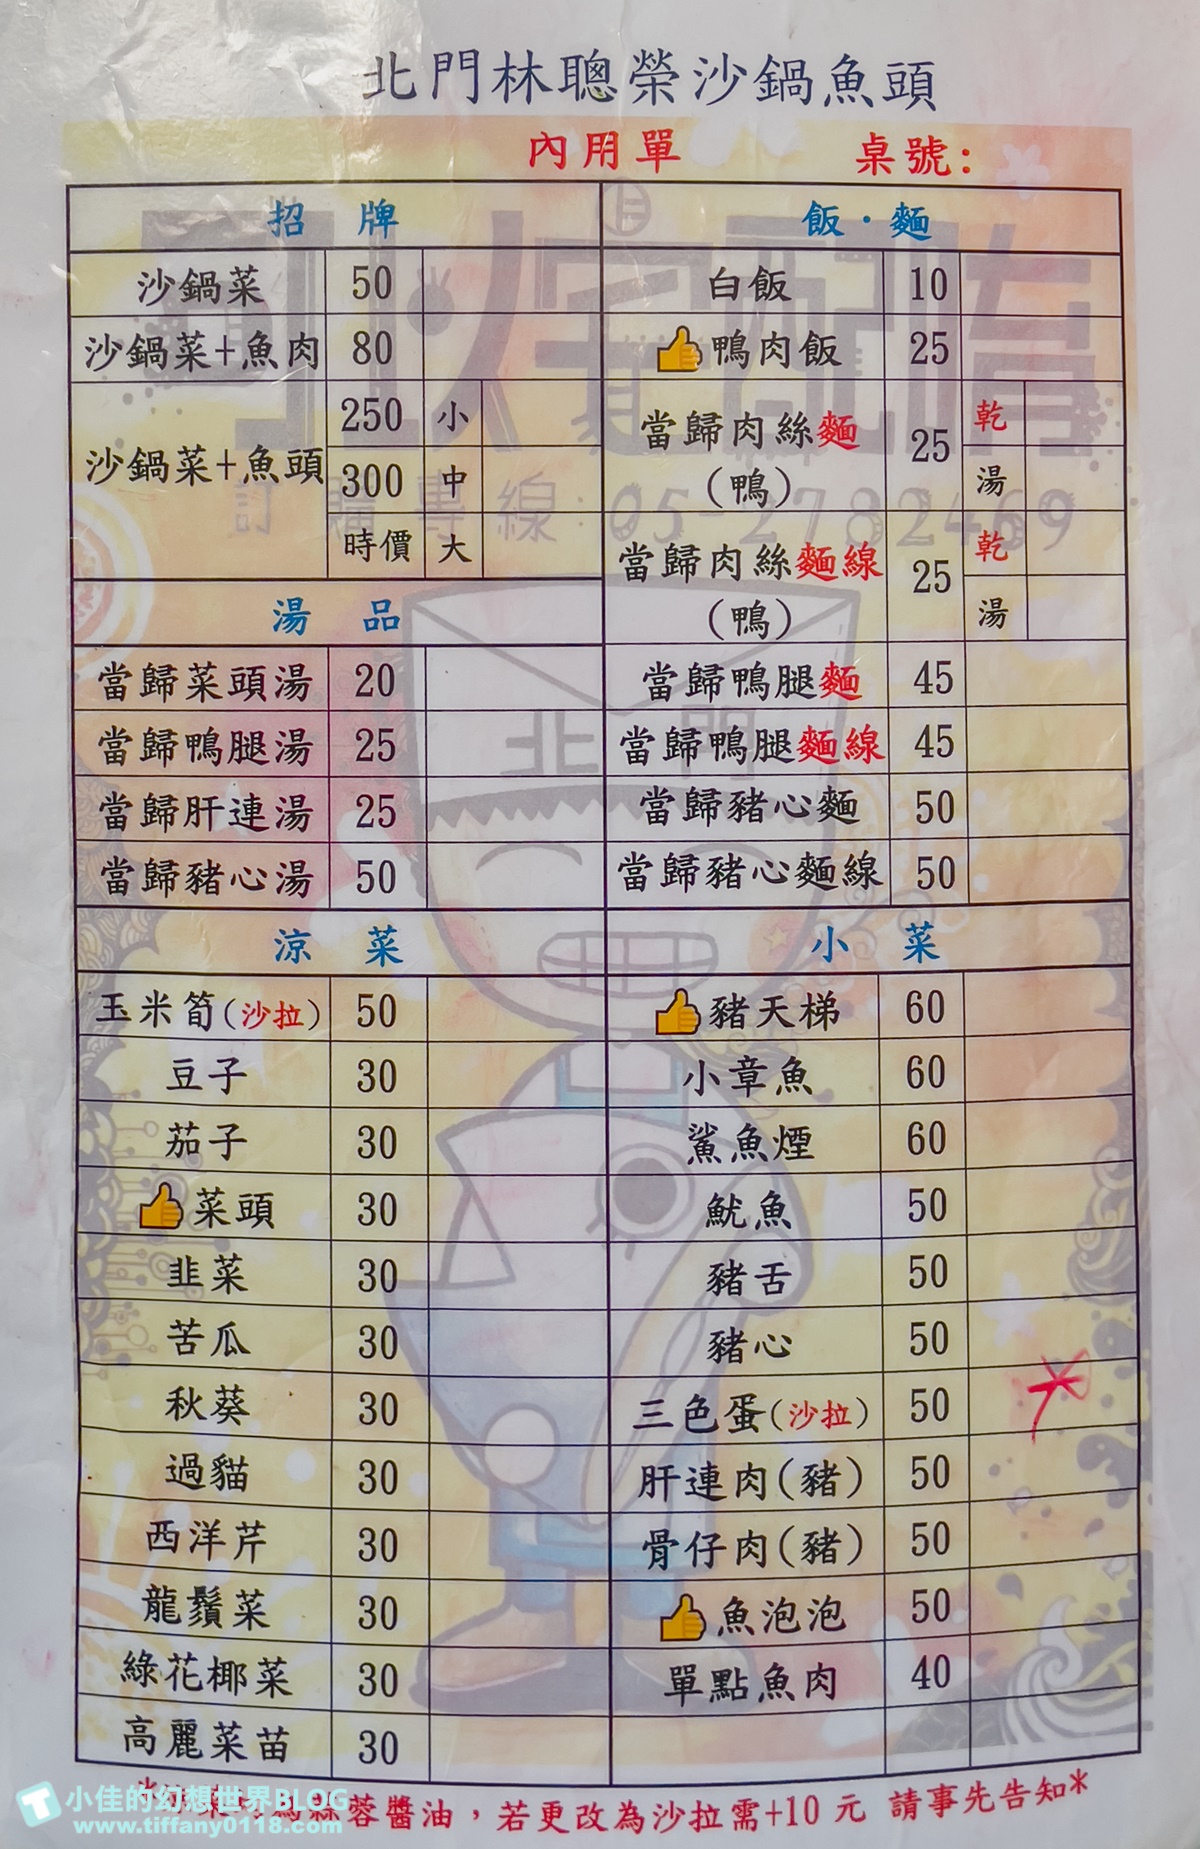 北門林聰榮沙鍋魚頭
內用單 桌號:
招 牌
沙鍋菜 50
沙鍋菜+魚肉 80
沙鍋菜+魚頭 250 小
300 中
時價 大
湯 品
當歸菜頭湯 20
當歸鴨腿湯 25
當歸肝連湯 25
當歸豬心湯 50
飯·麵
白飯 10
鴨肉飯 25
當歸肉絲麵(鴨) 25 乾
湯
當歸肉絲麵線(鴨) 25 乾
湯
當歸鴨腿麵 45
當歸鴨腿麵線 45
當歸豬心麵 50
當歸豬心麵線 50
涼 菜
玉米筍(沙拉) 50
豆子 30
茄子 30
菜頭 30
韭菜 30
苦瓜 30
秋葵 30
過貓 30
西洋芹 30
龍鬚菜 30
綠花椰菜 30
高麗菜苗 30
小 菜
豬天梯 60
小章魚 60
鯊魚煙 60
魷魚 50
豬舌 50
豬心 50
三色蛋(沙拉) 50
肝連肉(豬) 50
骨仔肉(豬) 50
魚泡泡 50
單點魚肉 40
訂購專線:05-2782469
北門
蒜蓉醬油，若更改為沙拉需+10元 請事先告知*
小佳的幻想世界BLOG
www.tiffany0118.com